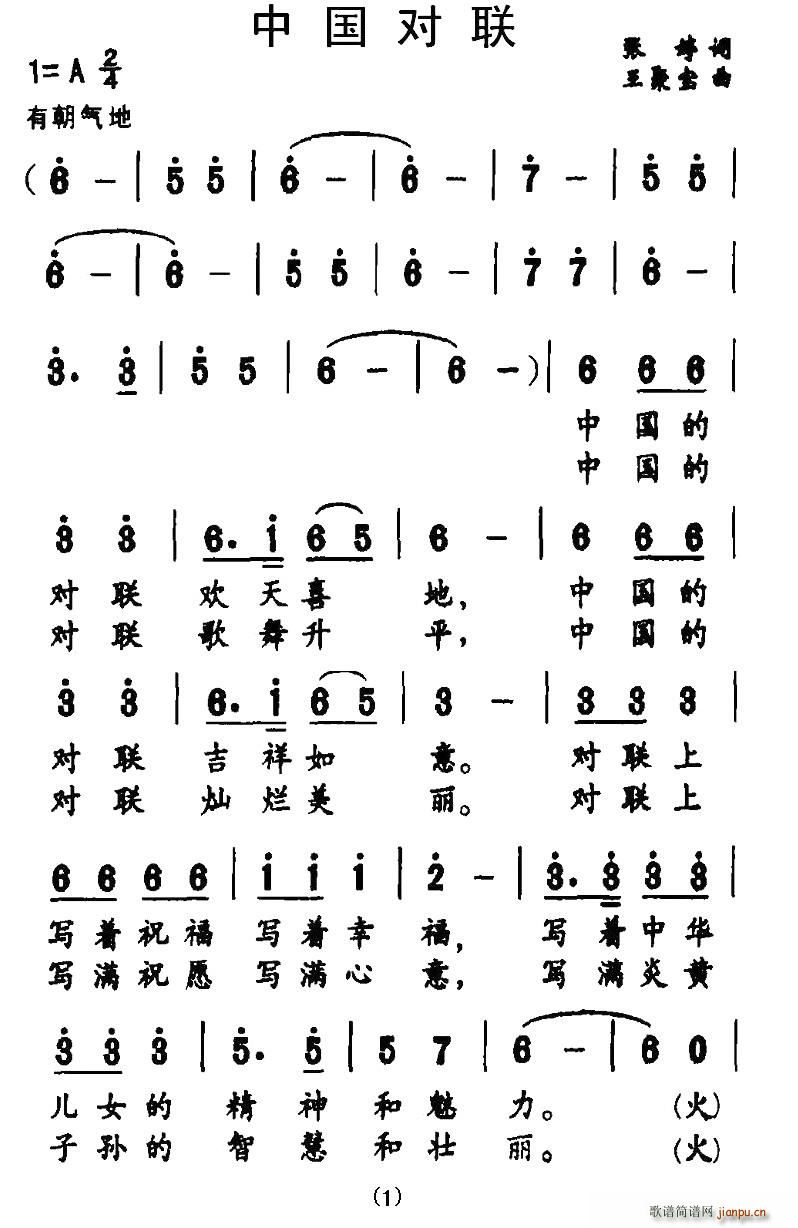 中国对联
张婷词
1=A 2/4
王聚宝曲
有朝气地
(6 - | 5 5 | 6 - | 6 - | 7 - | 5 5 |
6 - | 6 - | 5 5 | 6 - | 7 7 | 6 - |
3. 3 | 5 5 | 6 - | 6 -) | 6 6 6 |
中国的
中国的
3 3 | 6. 1 6 5 | 6 - | 6 6 6 |
对联欢天喜地，中国的
对联歌舞升平，中国的
3 3 | 6. 1 6 5 | 3 - | 3 3 3
对联吉祥如意。对联上
对联灿烂美丽。对联上
6 6 6 6 | 1 1 1 | 2 - | 3. 3 3 3 |
写着祝福写着幸福，写着中华
写满祝愿写满心意，写满炎黄
3 3 3 | 5. 5 | 5 7 | 6 - | 6 0 |
儿女的精神和魅力。(火)
子孙的智慧和壮丽。(火)
(1)
歌谱简谱网 jianpu.cn